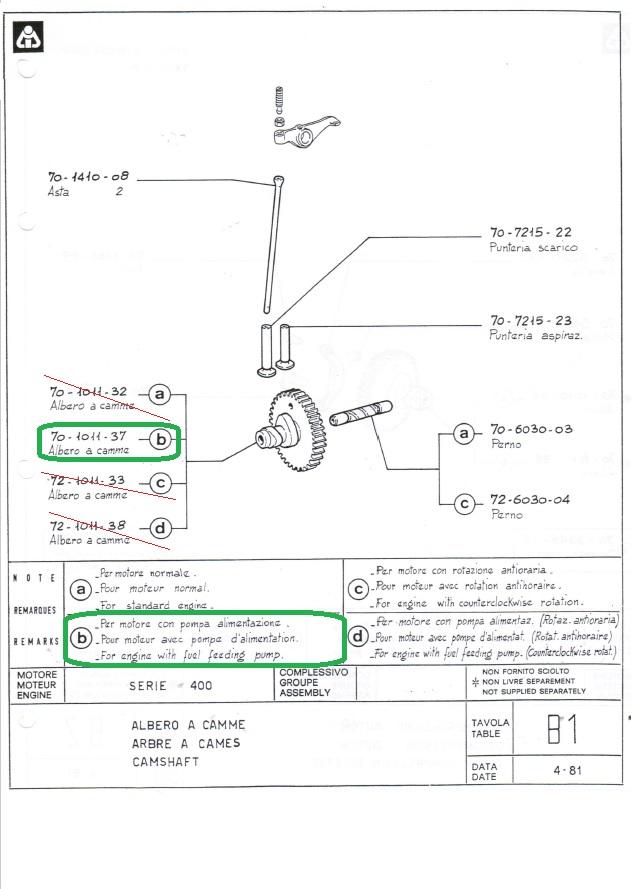 70-1410-08
Asta 2
70-7215-22
Punteria scarico
70-7215-23
Punteria aspiraz.
70-1011-32 a
Albero a camme
70-1011-37 b
Albero a camme
72-1011-33 c
Albero a camme
72-1011-38 d
Albero a camme
a 70-6030-03
Perno
c 72-6030-04
Perno
NOTE
REMARQUES
REMARKS
a
_Per motore normale.
_Pour moteur normal.
_For standard engine.
b
_Per motore con pompa alimentazione.
_Pour moteur avec pompe d'alimentation.
_For engine with fuel feeding pump.
c
_Per motore con rotazione antioraria.
_Pour moteur avec rotation antihoraire.
_For engine with counterclockwise rotation.
d
_Per motore con pompa alimentaz. (Rotaz. antioraria)
_Pour moteur avec pompe d'alimentat. (Rotat. antihoraire)
_For engine with fuel feeding pump. (Counterclockwise rotat.)
MOTORE
MOTEUR
ENGINE
SERIE 400
COMPLESSIVO
GROUPE
ASSEMBLY
* NON FORNITO SCIOLTO
NON LIVRE SEPAREMENT
NOT SUPPLIED SEPARATELY
ALBERO A CAMME
ARBRE A CAMES
CAMSHAFT
TAVOLA
TABLE
B1
DATA
DATE
4-81